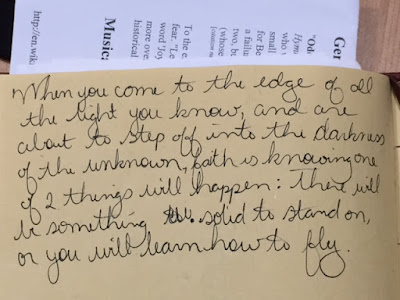 Ger
"Ode
Hymn
who w
small
for Be
a failu
two, bu
(whose
To the e
fear. "Le
word 'Joy
more over
historical
http://en.wik
When you come to the edge of all
the light you know, and are
about to step off into the darkness
of the unknown, faith is knowing one
of 2 things will happen: There will
be something solid to stand on,
or you will learn how to fly.